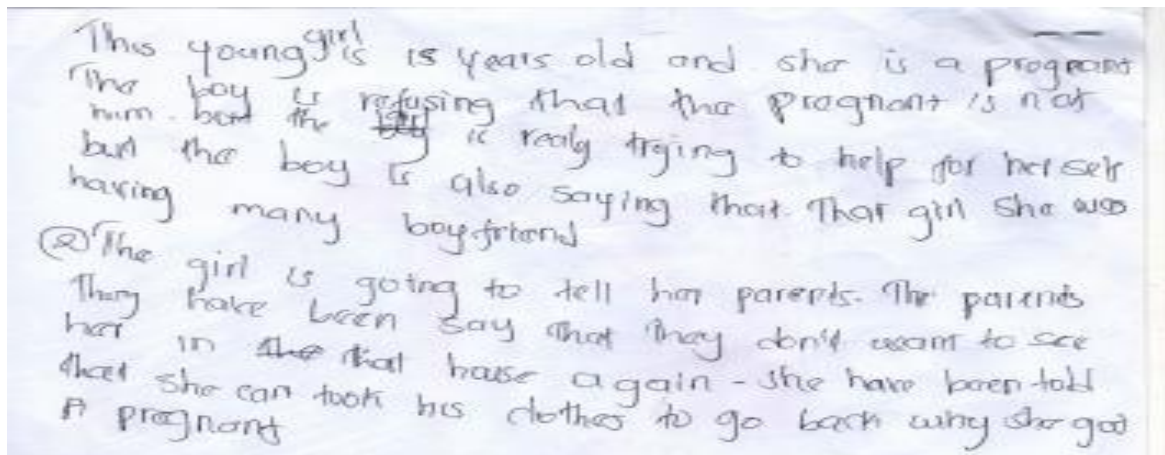 This young girl is 18 years old and she is a pregnant
The boy is refusing that the pregnant is not
him. but the girl is realy trying to help for herself
but the boy is also saying that. That girl she was
having many boyfriend
② The girl is going to tell her parents. The parents
They have been say that they don't want to see
her in the that house again - she have been told
that she can took his clothes to go back why she got
A pregnant